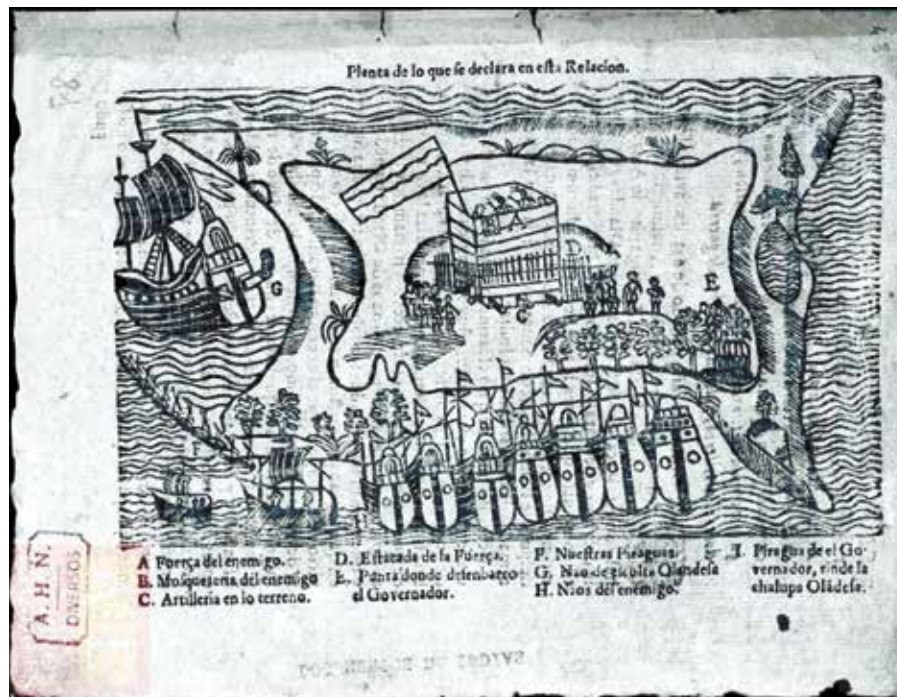 Planta de lo que se declara en esta Relacion.
A
D
G
C
E
F
A Fuerça del enemigo.
B. Mosqueteria del enemigo
C. Artilleria en lo terreno.
D. Estacada de la Fuerça.
E. Punta donde desenbarco
el Governador.
F. Nuestras Piraguas
G. Nao de escolta Olandesa
H. Naos del enemigo.
I. Piragua de el Go-
vernador, rinde la
chalupa Oládesa.
A. H. N.
DIVERSOS